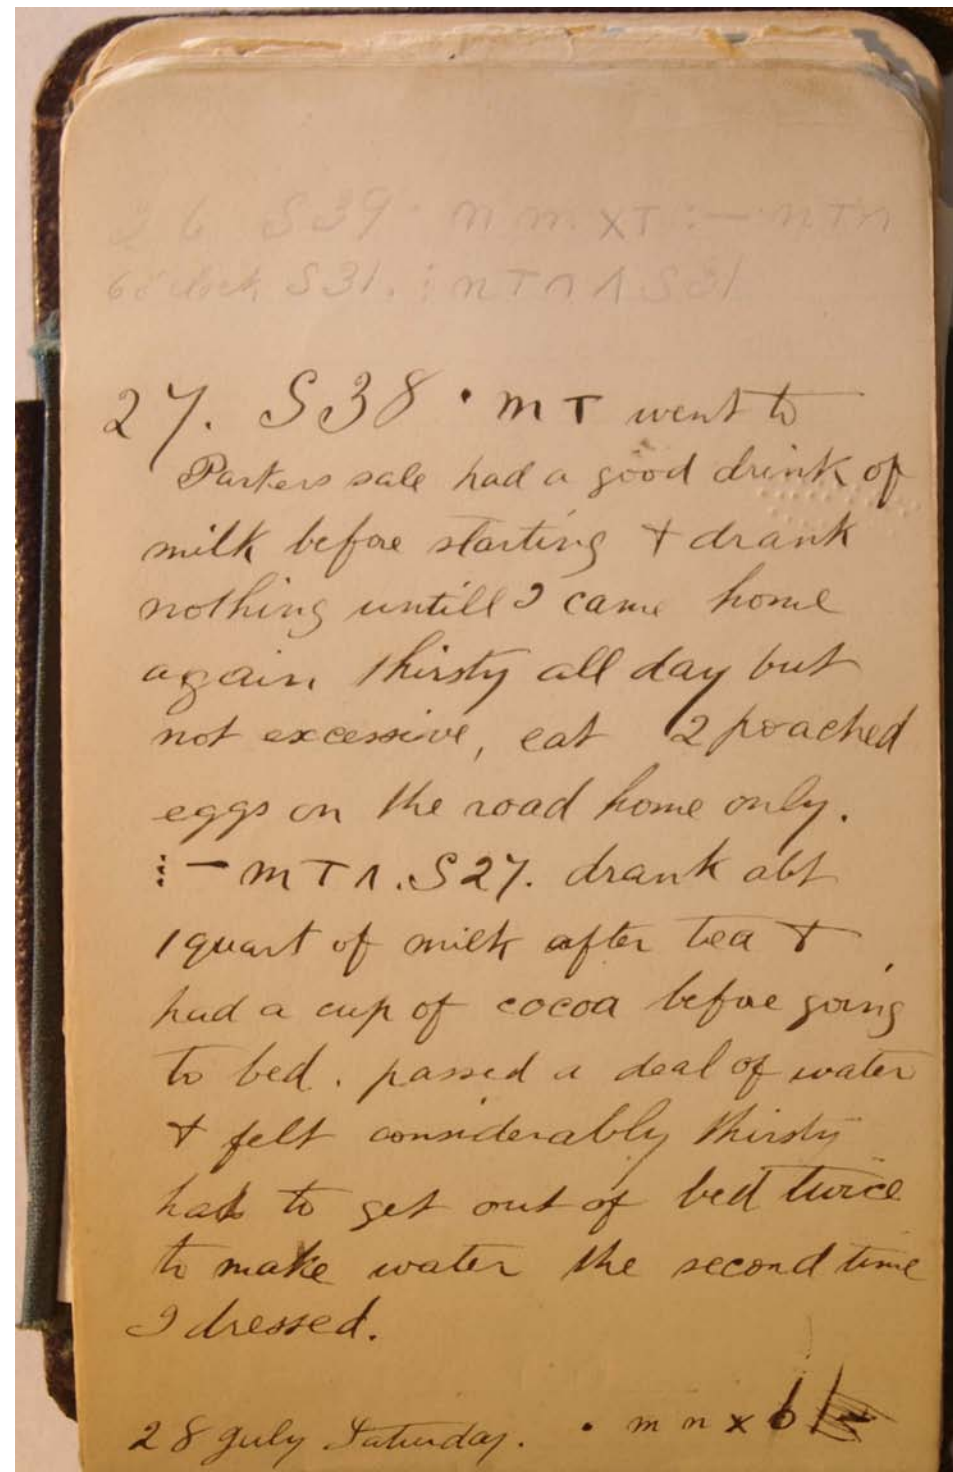 26 S39 · n m XT :— n T n
6 o'clock S31. : n T n Λ S31
27. S38 · m T went to
Parkers sale had a good drink of
milk before starting + drank
nothing untill I came home
again thirsty all day but
not excessive, eat 2 poached
eggs on the road home only.
⋮ — m T Λ. S27. drank abt
1 quart of milk after tea +
had a cup of cocoa before going
to bed. passed a deal of water
+ felt considerably thirsty
had to get out of bed twice
to make water the second time
I dressed.
28 July Saturday. · m n x 6